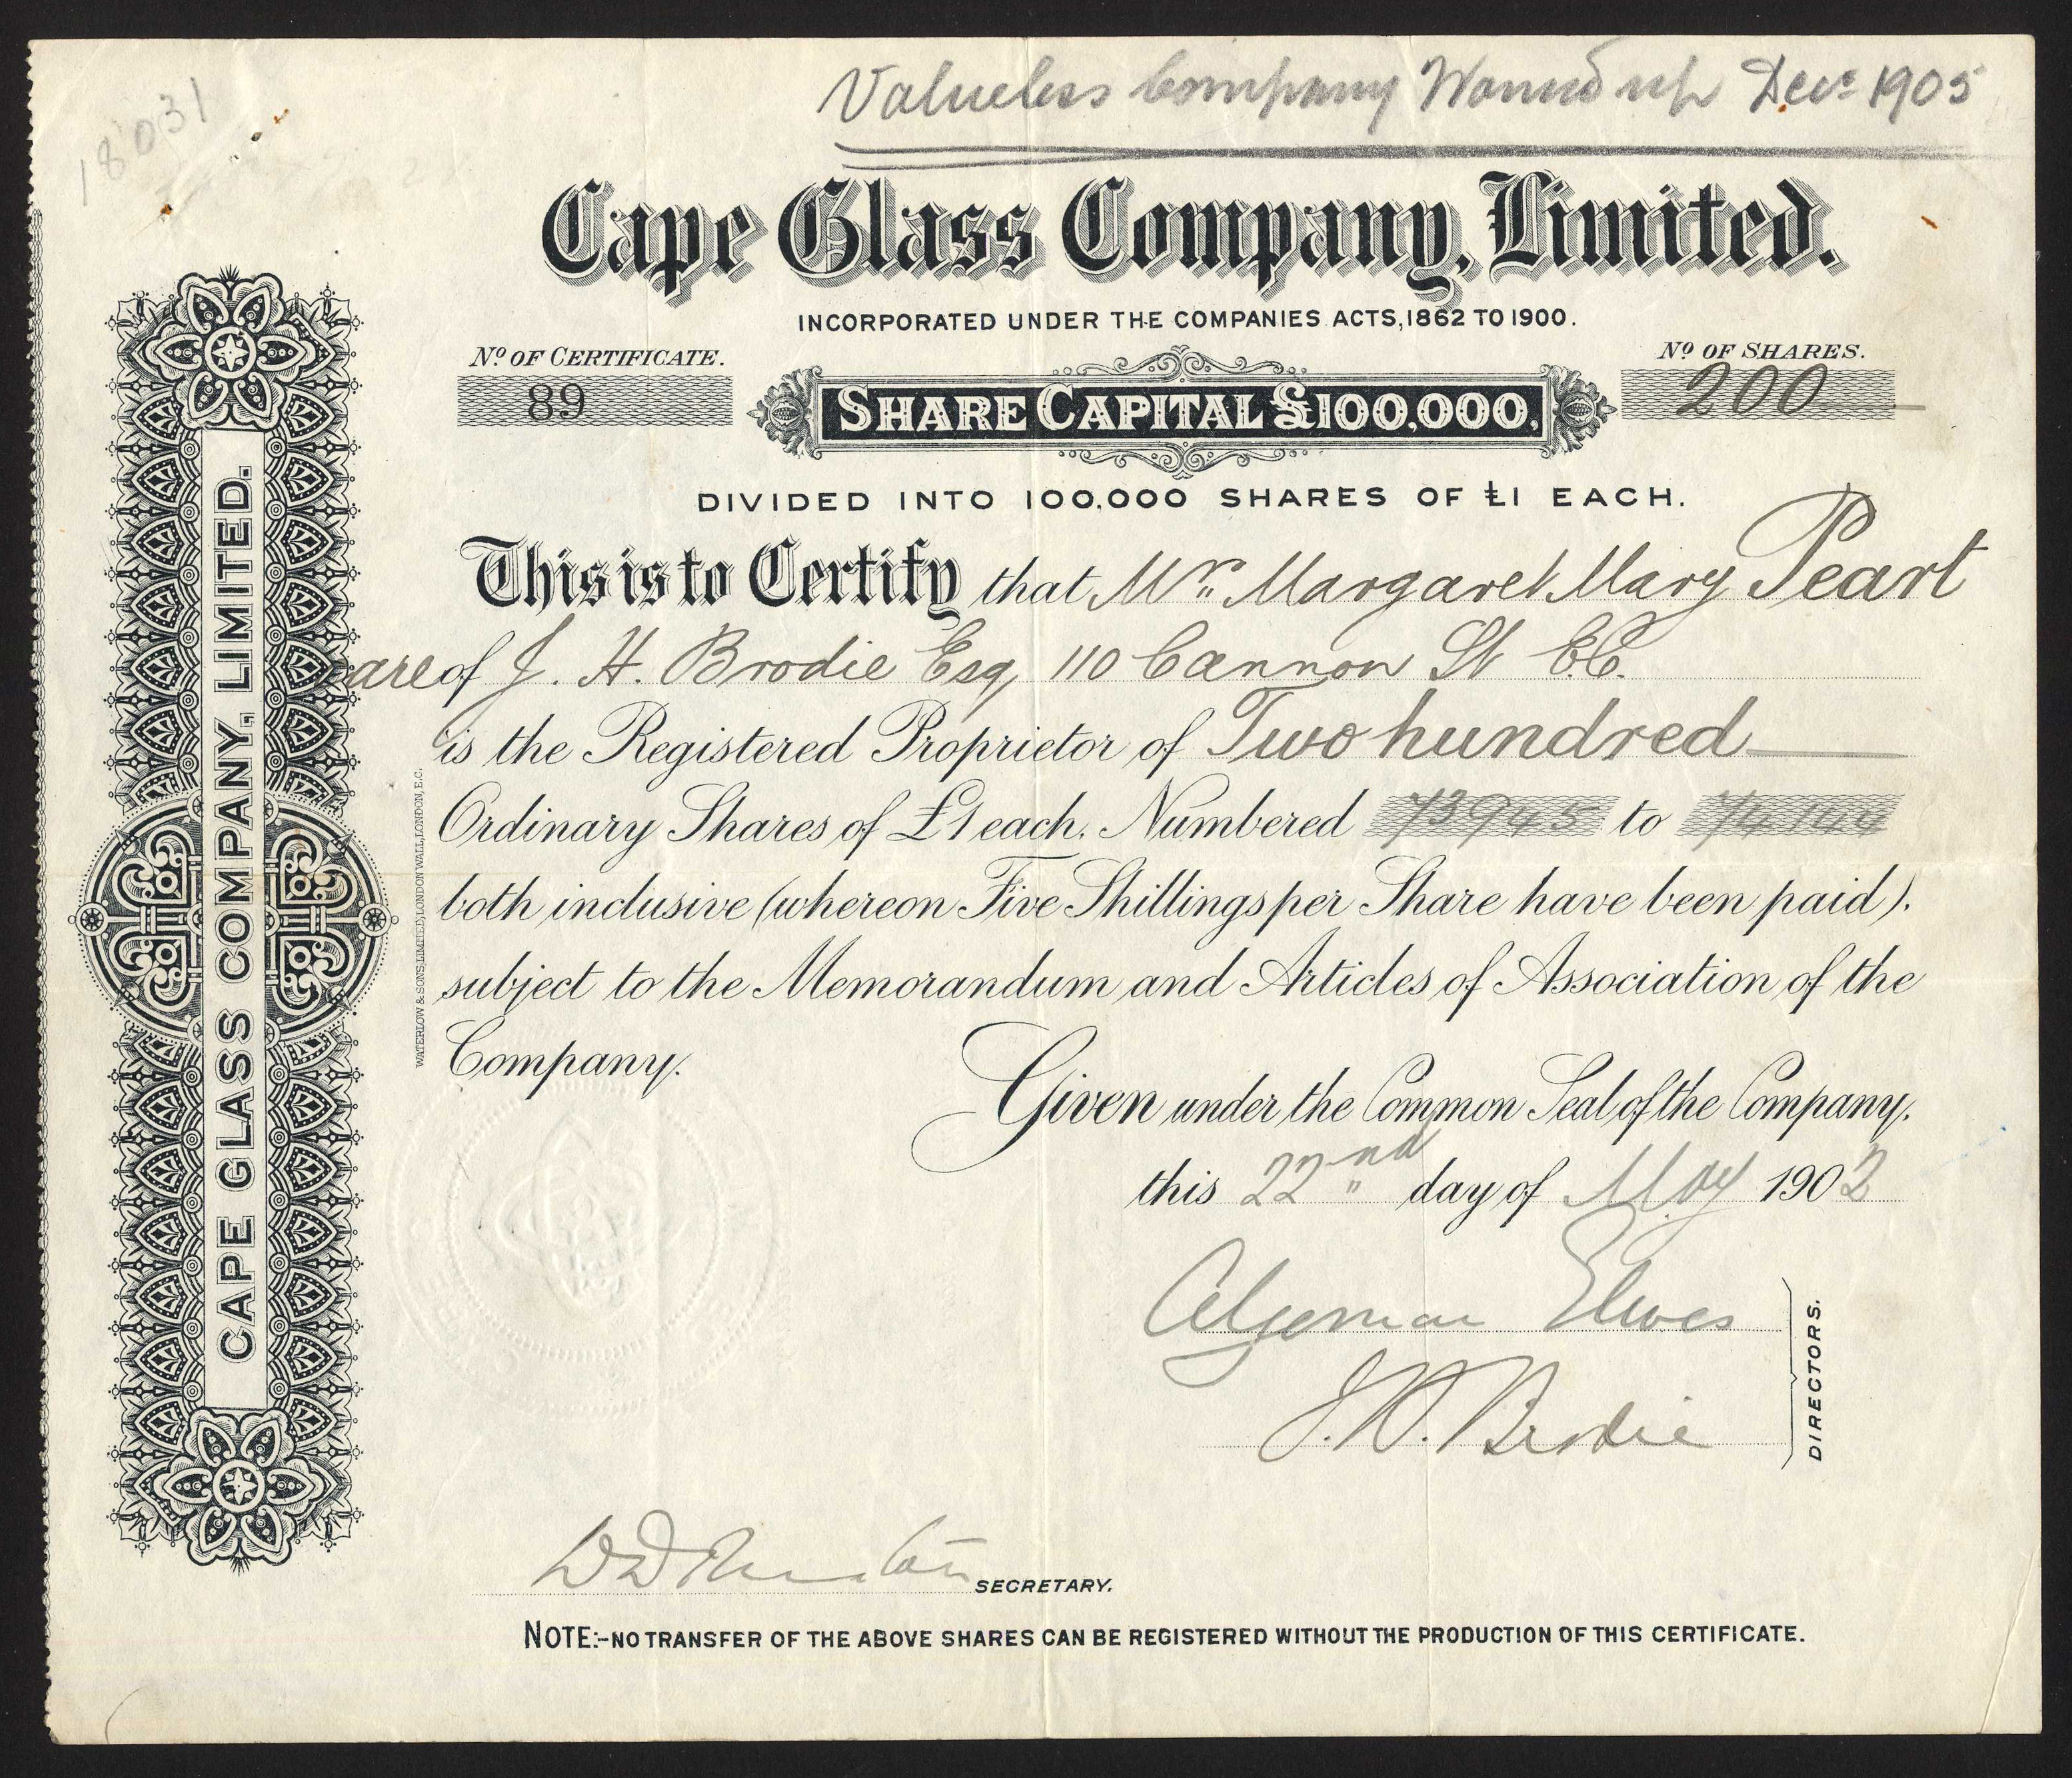 18031
Valueless Company Wound up Decr 1905
Cape Glass Company, Limited.
INCORPORATED UNDER THE COMPANIES ACTS, 1862 TO 1900.
No OF CERTIFICATE.
89
SHARE CAPITAL £100,000.
No OF SHARES.
200
DIVIDED INTO 100,000 SHARES OF £1 EACH.
This is to Certify that Mrs Margaret Mary Peart
care of J. H. Brodie Esq, 110 Cannon St E.C.
is the Registered Proprietor of Two hundred
Ordinary Shares of £1 each. Numbered 73945 to 74144
both inclusive (whereon Five Shillings per Share have been paid).
subject to the Memorandum and Articles of Association of the
Company.
Given under the Common Seal of the Company.
this 22nd day of May 1902
Algernon Elwes
J. H. Brodie
DIRECTORS.
SECRETARY.
NOTE:-NO TRANSFER OF THE ABOVE SHARES CAN BE REGISTERED WITHOUT THE PRODUCTION OF THIS CERTIFICATE.
CAPE GLASS COMPANY, LIMITED.
WATERLOW & SONS, LIMITED, LONDON WALL, LONDON, E.C.